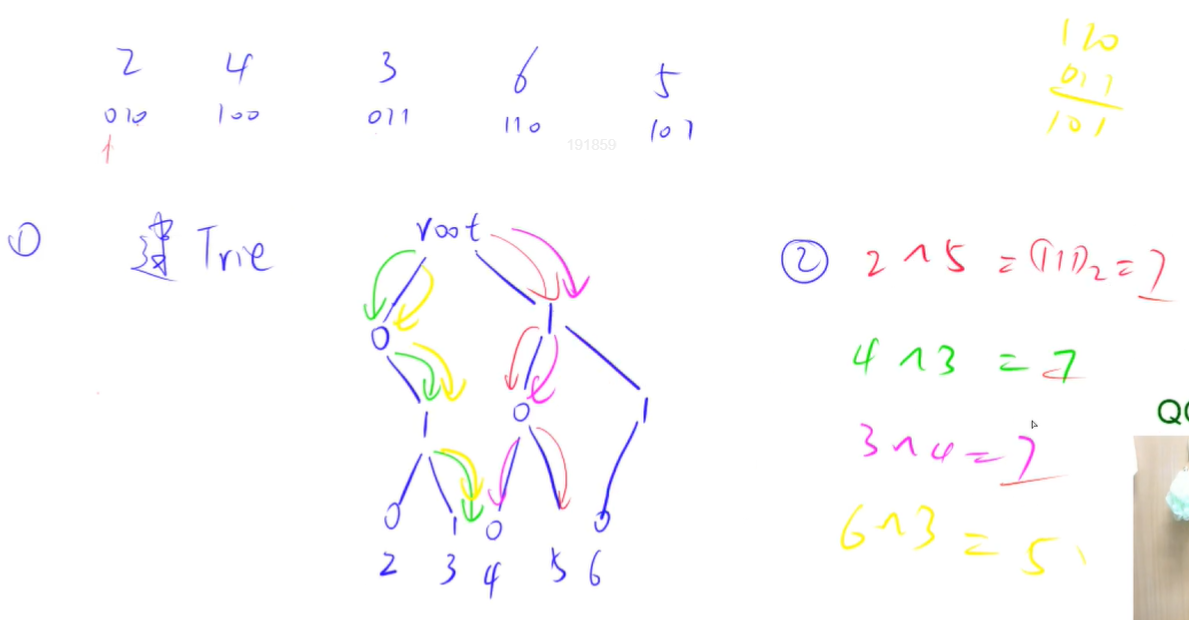 2 4 3 6 5
010 100 011 110 101
191859
110
011
101
① 建 Trie
root
0 1
1 0 1
0 1 0 0
2 3 4 5 6
② 2 ^ 5 = (111)₂ = 7
4 ^ 3 = 7
3 ^ 4 = 7
6 ^ 3 = 5